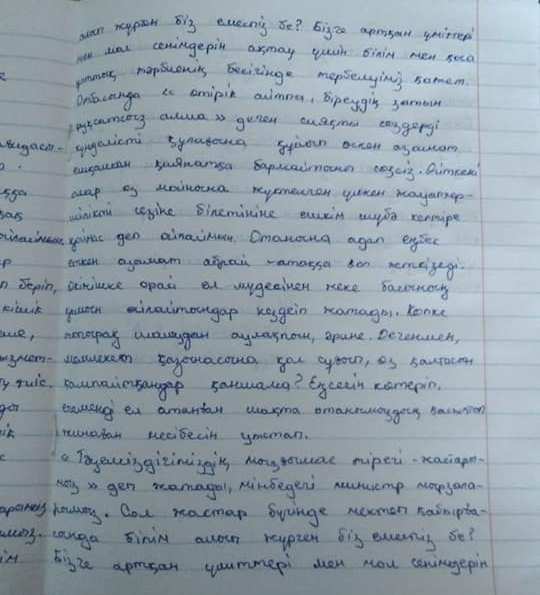 алып жүрген біз емеспіз бе? Бізге артқан үміттері
мен мол сенімдерін ақтау үшін білім мен қоса
ұлттық тәрбиенің бесігінде тербелуіміз қажет.
Отбасында « өтірік айтпа, біреудің затын
рұқсатсыз алма » деген сияқты сөздерді
күнделікті құлағына құйып өскен азамат
ешқашан қиянатқа бармайтыны сөзсіз. Өйткені
олар өз мойнына жүктелген үлкен жауапкер-
шілікті сезіне білетініне ешкім шүбә келтіре
қоймас деп ойлаймын. Отанына адал еңбек
еткен азамат абрай -атаққа қол жеткізеді.
өкінішке орай ел мүддесінен жеке басының
қамын ойлайтындар кездеп жатады. Көпке
топырақ шашудан аулақпын, әрине. Дегенмен,
мемлекет қазынасына қол сұғып, өз қалтасын
қампайтқандар қаншама? Еңсесін көтеріп,
егеменді ел атанған шақта отанымыздың
жинаған несібесін ұмытып.
« Тәуелсіздігіміздің мызғымас тірегі - жастары-
мыз » деп жатады, мінбедегі министр мырзала-
рымыз. Сол жастар бүгінде мектеп қабырға-
сында білім алып жүрген біз емеспіз бе?
Бізге артқан үміттері мен мол сенімдерін